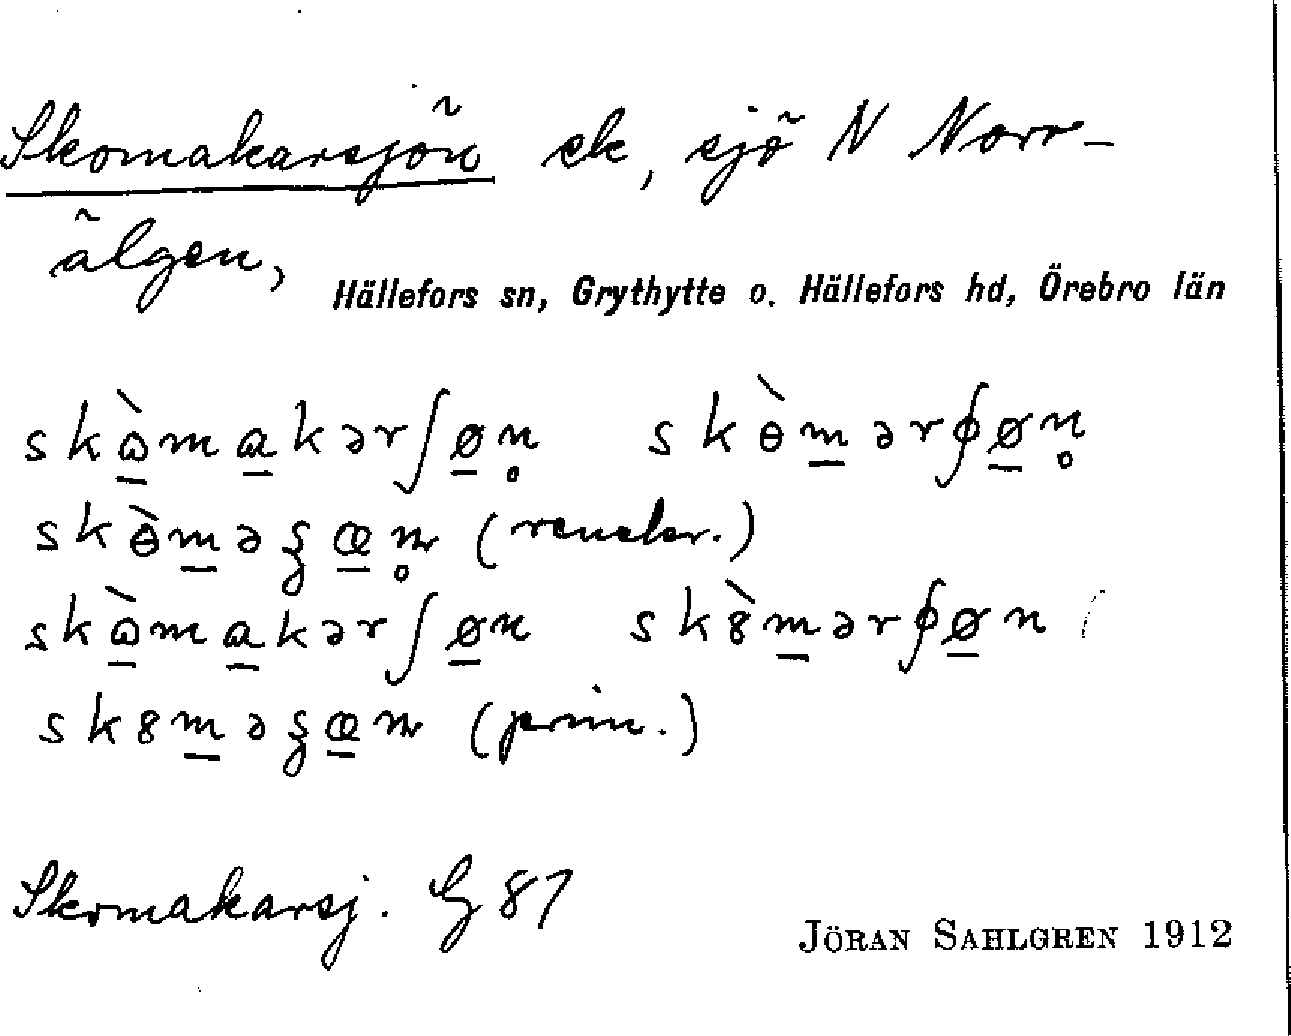 Skomakarsjön ek, sjö N Norr-
älgen,
Hällefors sn, Grythytte o. Hällefors hd, Örebro län
skɷ̀makərʃøn̥ skɵ̀mərʃøn̥
skɵ̀məʂœn̥ (runeber.)
skɷ̀makərʃøn sk8̀mərʃøn
sk8məʂœn (prim.)
Skomakarsj. G 87
JÖRAN SAHLGREN 1912